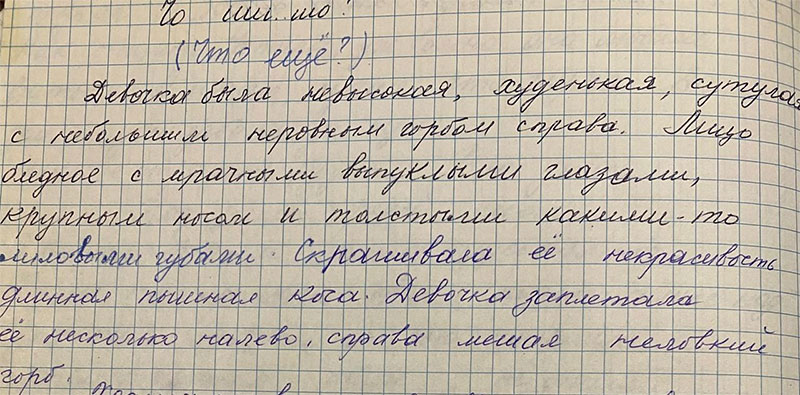 (Что ещё?)
Девочка была невысокая, худенькая, сутулая
с небольшим неровным горбом справа. Лицо
бледное с мрачными выпуклыми глазами,
крупным носом и толстыми какими-то
лиловыми губами. Скрашивала её некрасивость
длинная пышная коса. Девочка заплетала
её несколько налево, справа мешал неловкий
горб.